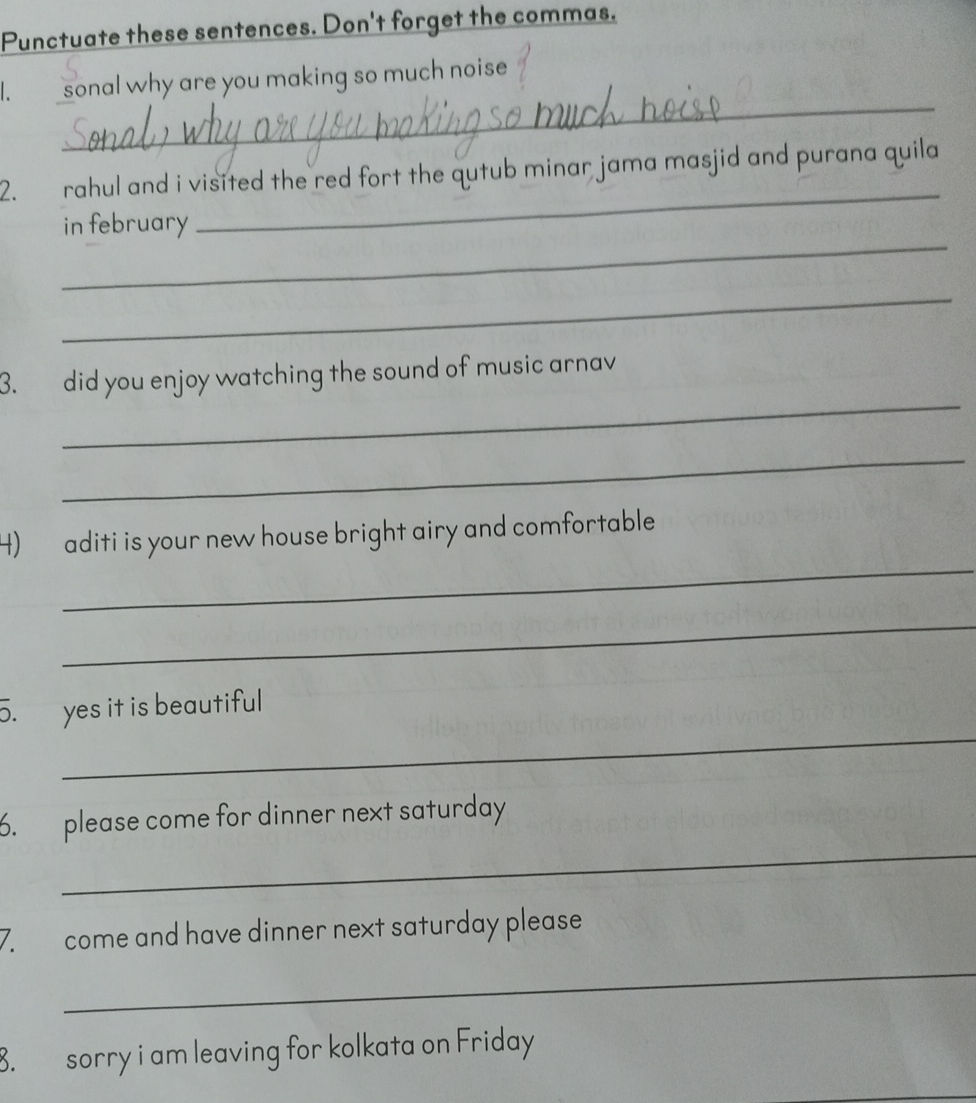 Punctuate these sentences. Don't forget the commas.
1. sonal why are you making so much noise ?
S
Sonal, why are you making so much noise ?
2. rahul and i visited the red fort the qutub minar, jama masjid and purana quila
in february
3. did you enjoy watching the sound of music arnav
4) aditi is your new house bright airy and comfortable
5. yes it is beautiful
6. please come for dinner next saturday
7. come and have dinner next saturday please
8. sorry i am leaving for kolkata on Friday